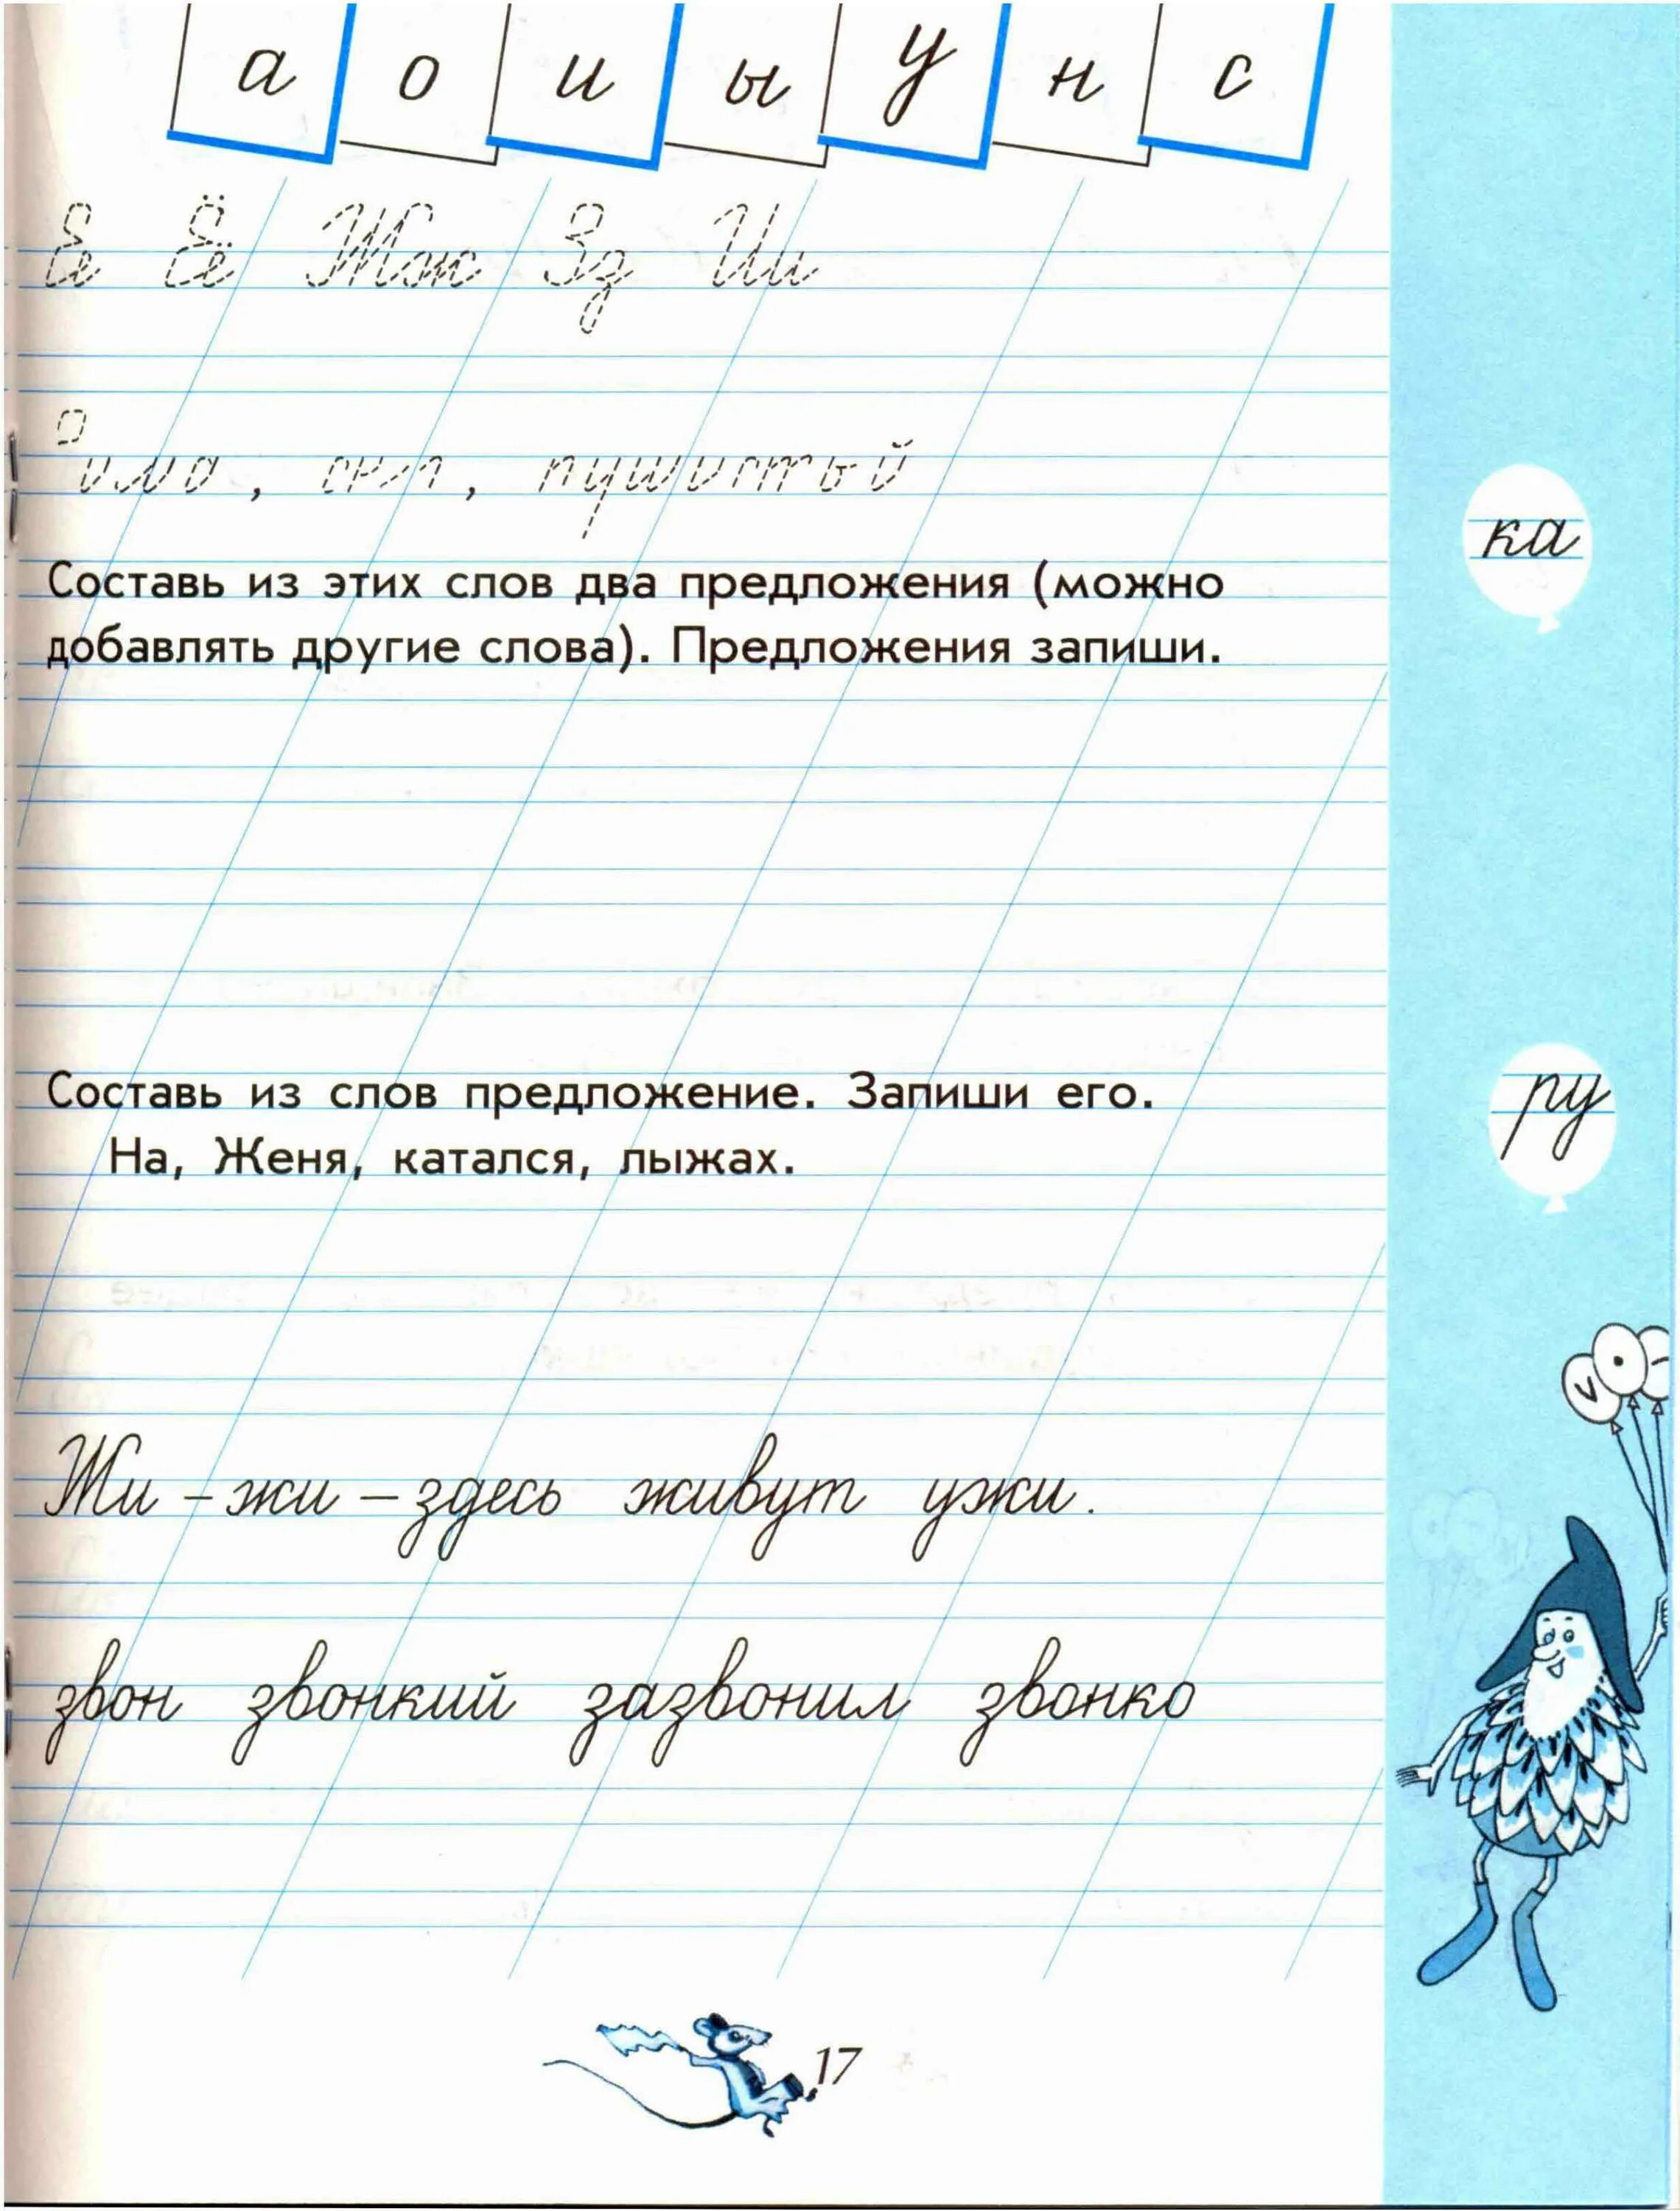 а о и ы у н с
Ее Ёё Жж Зз Ии
, , пушистый
ка
Составь из этих слов два предложения (можно
добавлять другие слова). Предложения запиши.
Составь из слов предложение. Запиши его.
На, Женя, катался, лыжах.
ру
Жи - жи - здесь живут ужи.
звон звонкий зазвонил звонко
17